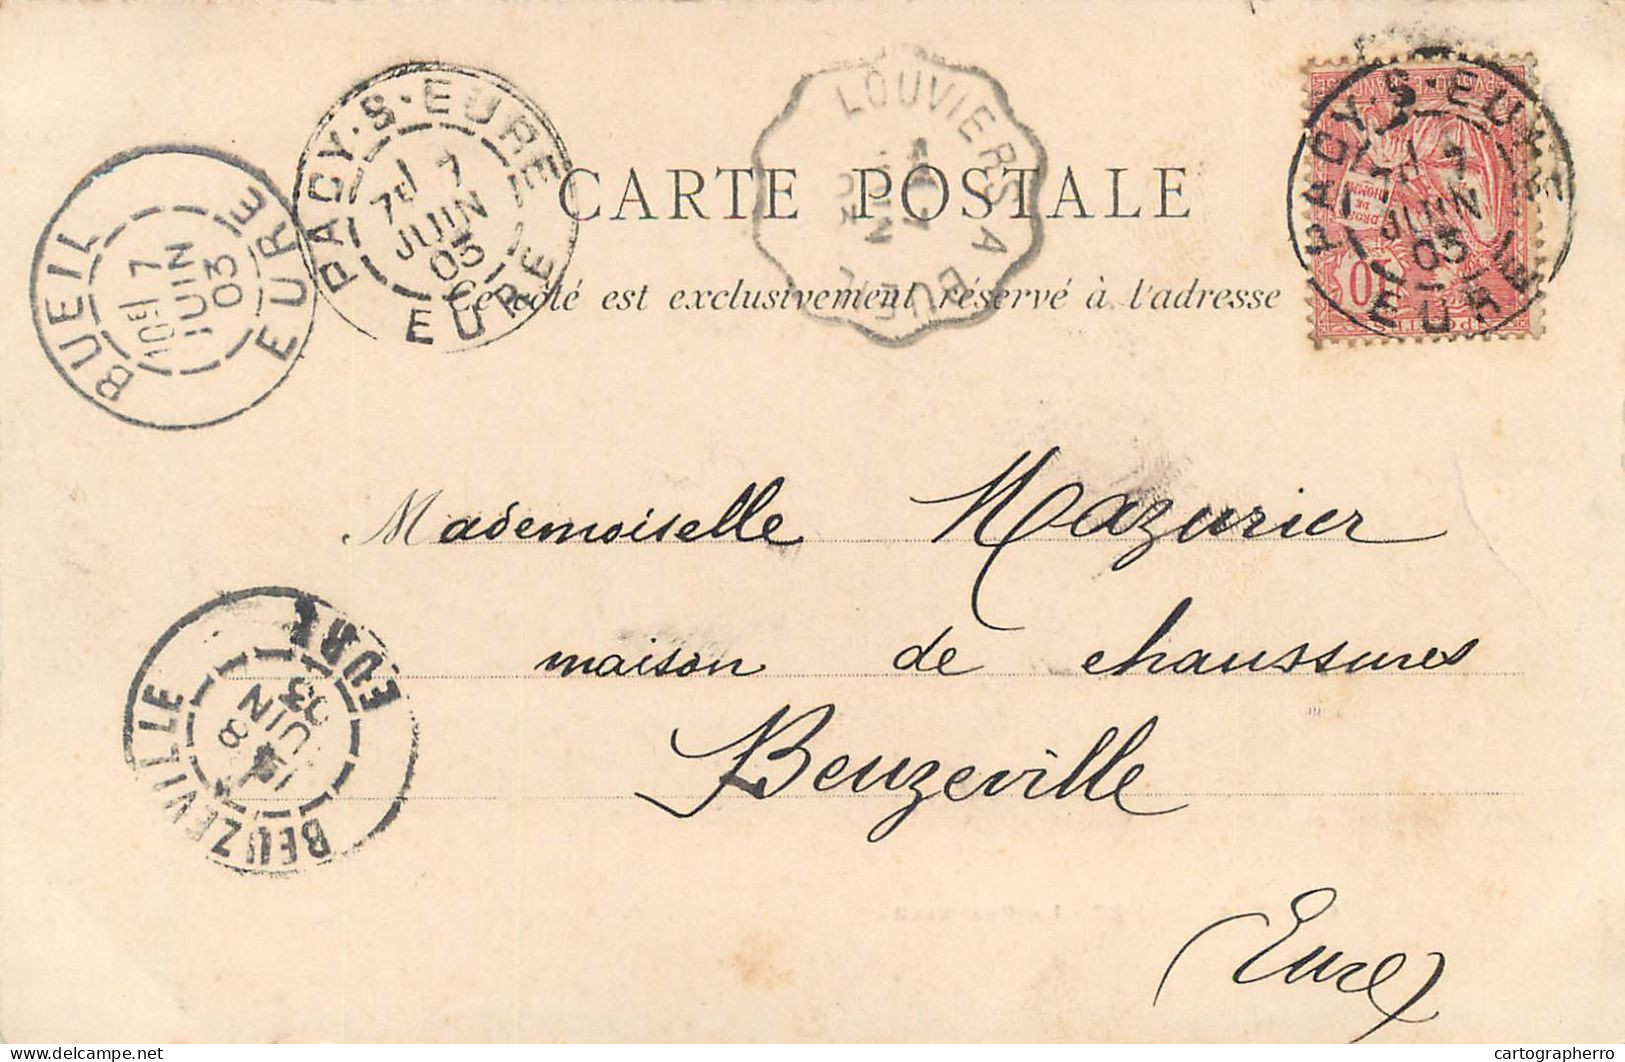 CARTE POSTALE
Ce côté est exclusivement réservé à l'adresse
PACY-S-EURE
7
JUIN
03
EURE
BUEIL
7
JUIN
03
EURE
LOUVIERS A BUEIL
JUIN
PACY-S-EURE
JUIN
03
EURE
10
Mademoiselle Mazurier
maison de chaussures
Beuzeville
(Eure)
BEUZEVILLE
8
JUIN
03
EURE
cartographerro